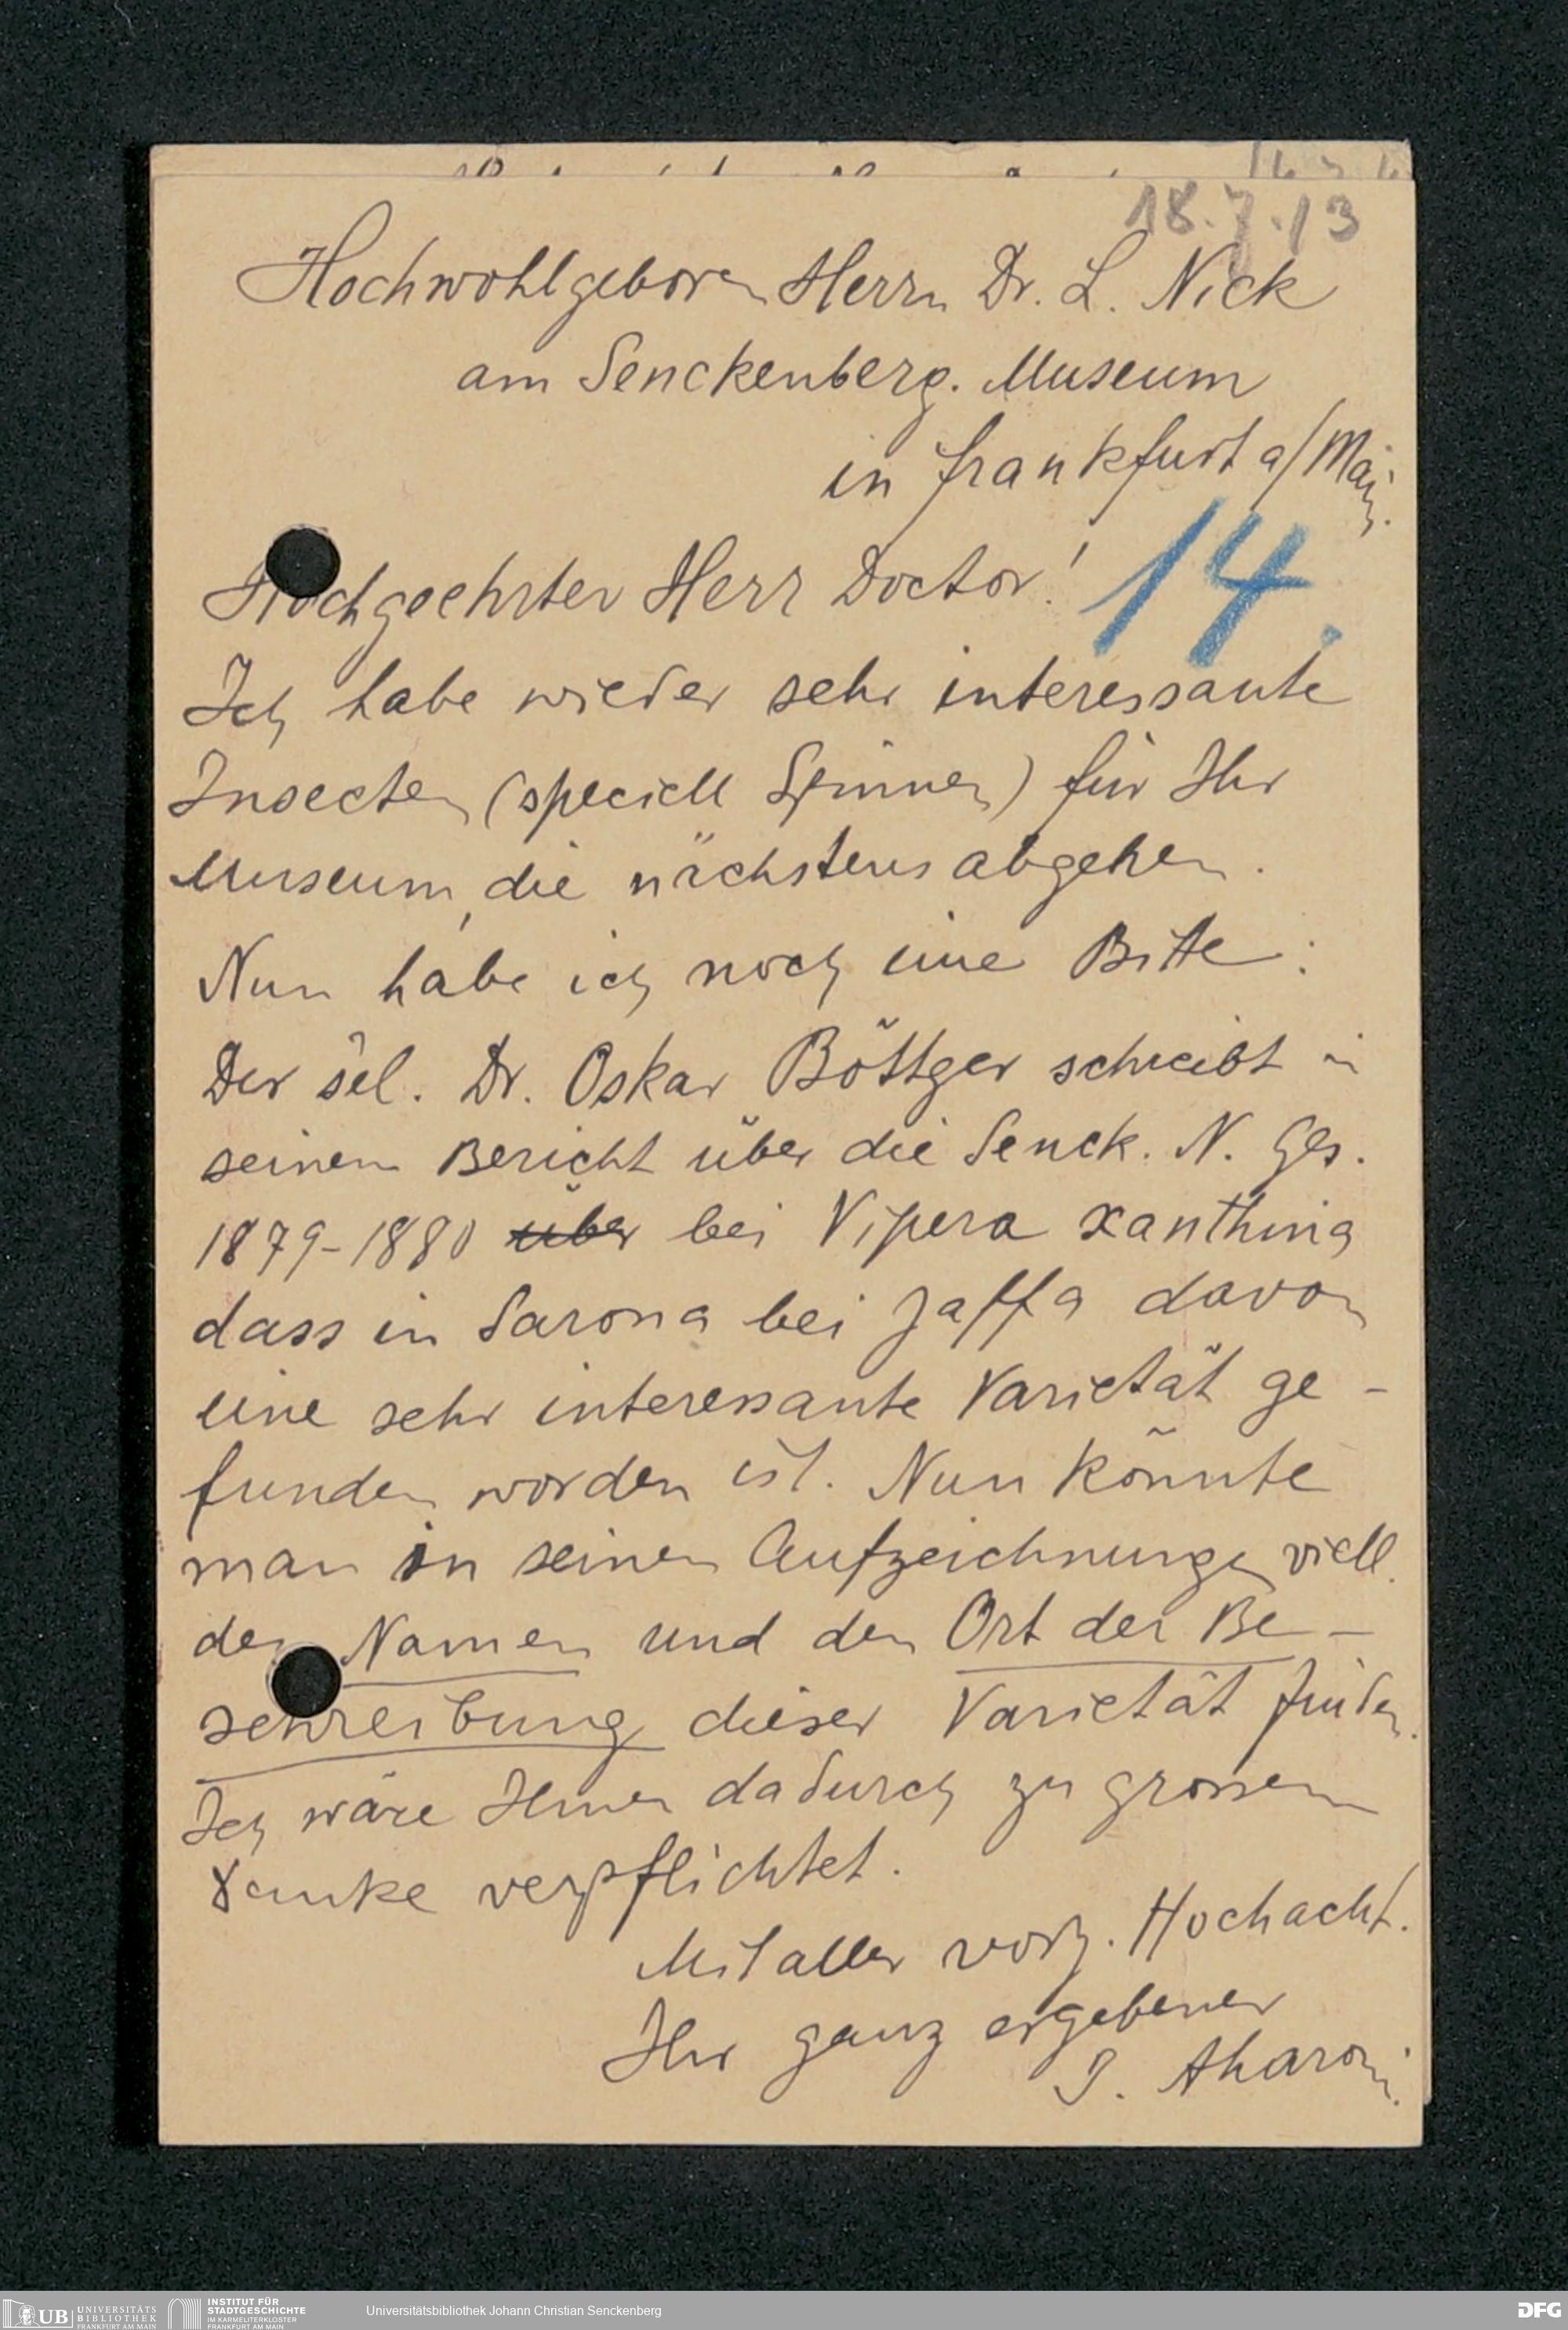 18.7.13
Hochwohlgeboren Herrn Dr. L. Nick
am Senckenberg. Museum
in Frankfurt a/Main.
Hochgeehrter Herr Doctor!
14.
Ich habe wieder sehr interessante
Insecten (speciell Spinnen) für Ihr
Museum, die nächstens abgehen.
Nun habe ich noch eine Bitte:
Der sel. Dr. Oskar Böttger schreibt in
seinem Bericht über die Senck. N. Ges.
1879-1880 über bei Vipera xanthina
dass in Sarona bei Jaffa davon
eine sehr interessante Varietät ge-
funden worden ist. Nun könnte
man in seinen Aufzeichnungen viell.
den Namen und den Ort der Be-
schreibung dieser Varietät finden.
Ich wäre Ihnen dadurch zu grossem
Danke verpflichtet.
Mit aller vorz. Hochacht.
Ihr ganz ergebener
J. Aharoni.
UB UNIVERSITÄTS
BIBLIOTHEK
FRANKFURT AM MAIN
INSTITUT FÜR
STADTGESCHICHTE
IM KARMELITERKLOSTER
FRANKFURT AM MAIN
Universitätsbibliothek Johann Christian Senckenberg
DFG